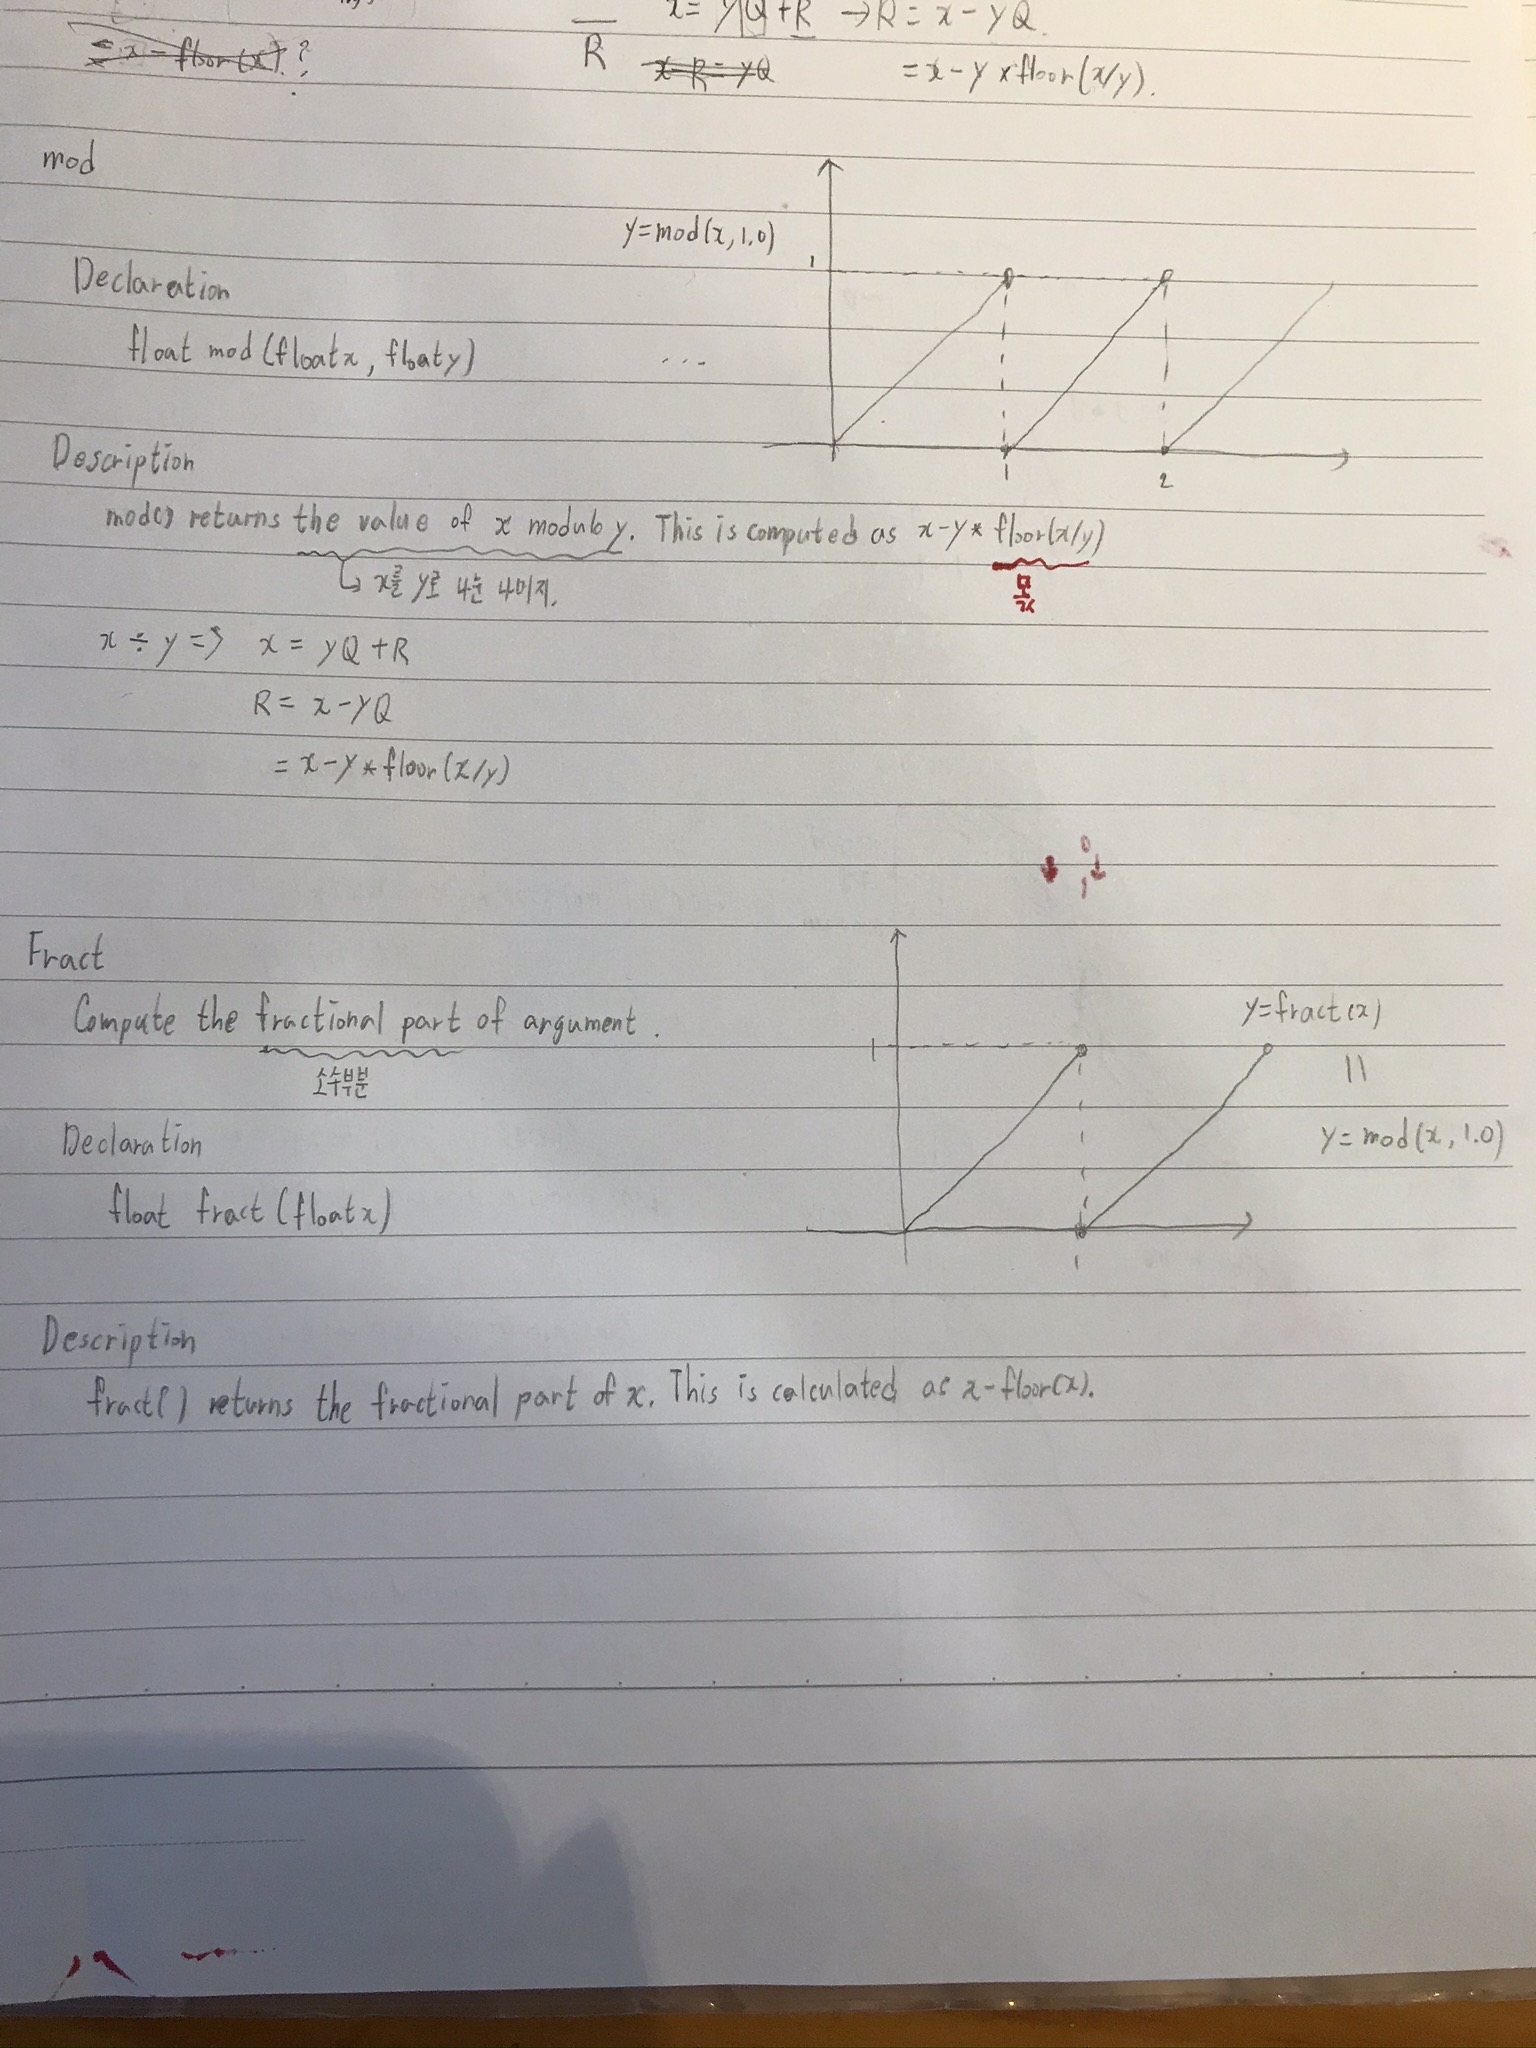 x = yQ + R → R = x - yQ.
= x - floor(x) ?
R
x - R = yQ
= x - y × floor(x/y).
mod
y=mod(x, 1.0)
1
Declaration
float mod (float x, float y)
...
1
2
Description
mod() returns the value of x modulo y. This is computed as x-y* floor(x/y)
↳ x를 y로 나눈 나머지.
몫
x ÷ y => x = yQ + R
R = x - yQ
= x - y * floor(x/y)
0
1
Fract
y=fract(x)
Compute the fractional part of argument.
1
||
소수부분
y= mod(x, 1.0)
Declaration
float fract (float x)
1
Description
fract() returns the fractional part of x. This is calculated as x-floor(x).